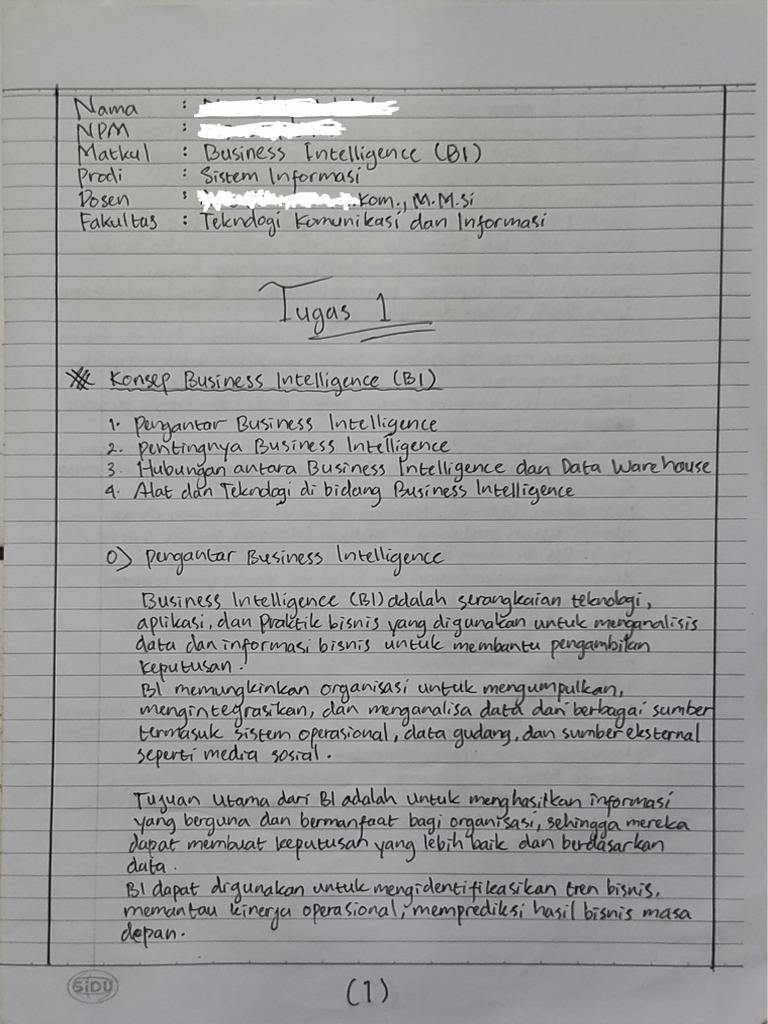 Nama :
NPM :
Matkul : Business Intelligence (BI)
Prodi : Sistem Informasi
Dosen : .Kom., M.M.Si
Fakultas : Teknologi Komunikasi dan Informasi
Tugas 1
Konsep Business Intelligence (BI)
1. Pengantar Business Intelligence
2. Pentingnya Business Intelligence
3. Hubungan antara Business Intelligence dan Data Warehouse
4. Alat dan Teknologi di bidang Business Intelligence
0) Pengantar Business Intelligence
Business Intelligence (BI) adalah serangkaian teknologi,
aplikasi, dan Praktik bisnis yang digunakan untuk menganalisis
data dan informasi bisnis untuk membantu pengambilan
keputusan.
BI memungkinkan organisasi untuk mengumpulkan,
mengintegrasikan, dan menganalisa data dari berbagai sumber
termasuk sistem operasional, data gudang, dan sumber eksternal
seperti media sosial.
Tujuan utama dari BI adalah untuk menghasilkan informasi
yang berguna dan bermanfaat bagi organisasi, sehingga mereka
dapat membuat keputusan yang lebih baik dan berdasarkan
data.
BI dapat digunakan untuk mengidentifikasikan tren bisnis,
memantau kinerja operasional, memprediksi hasil bisnis masa
depan.
SIDU
(1)